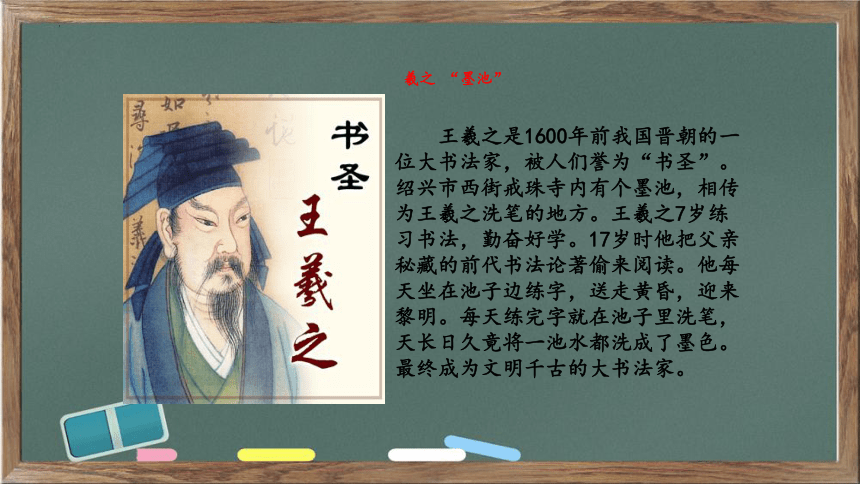 羲之 “墨池”
书圣
王羲之
王羲之是1600年前我国晋朝的一
位大书法家，被人们誉为“书圣”。
绍兴市西街戒珠寺内有个墨池，相传
为王羲之洗笔的地方。王羲之7岁练
习书法，勤奋好学。17岁时他把父亲
秘藏的前代书法论著偷来阅读。他每
天坐在池子边练字，送走黄昏，迎来
黎明。每天练完字就在池子里洗笔，
天长日久竟将一池水都洗成了墨色。
最终成为文明千古的大书法家。